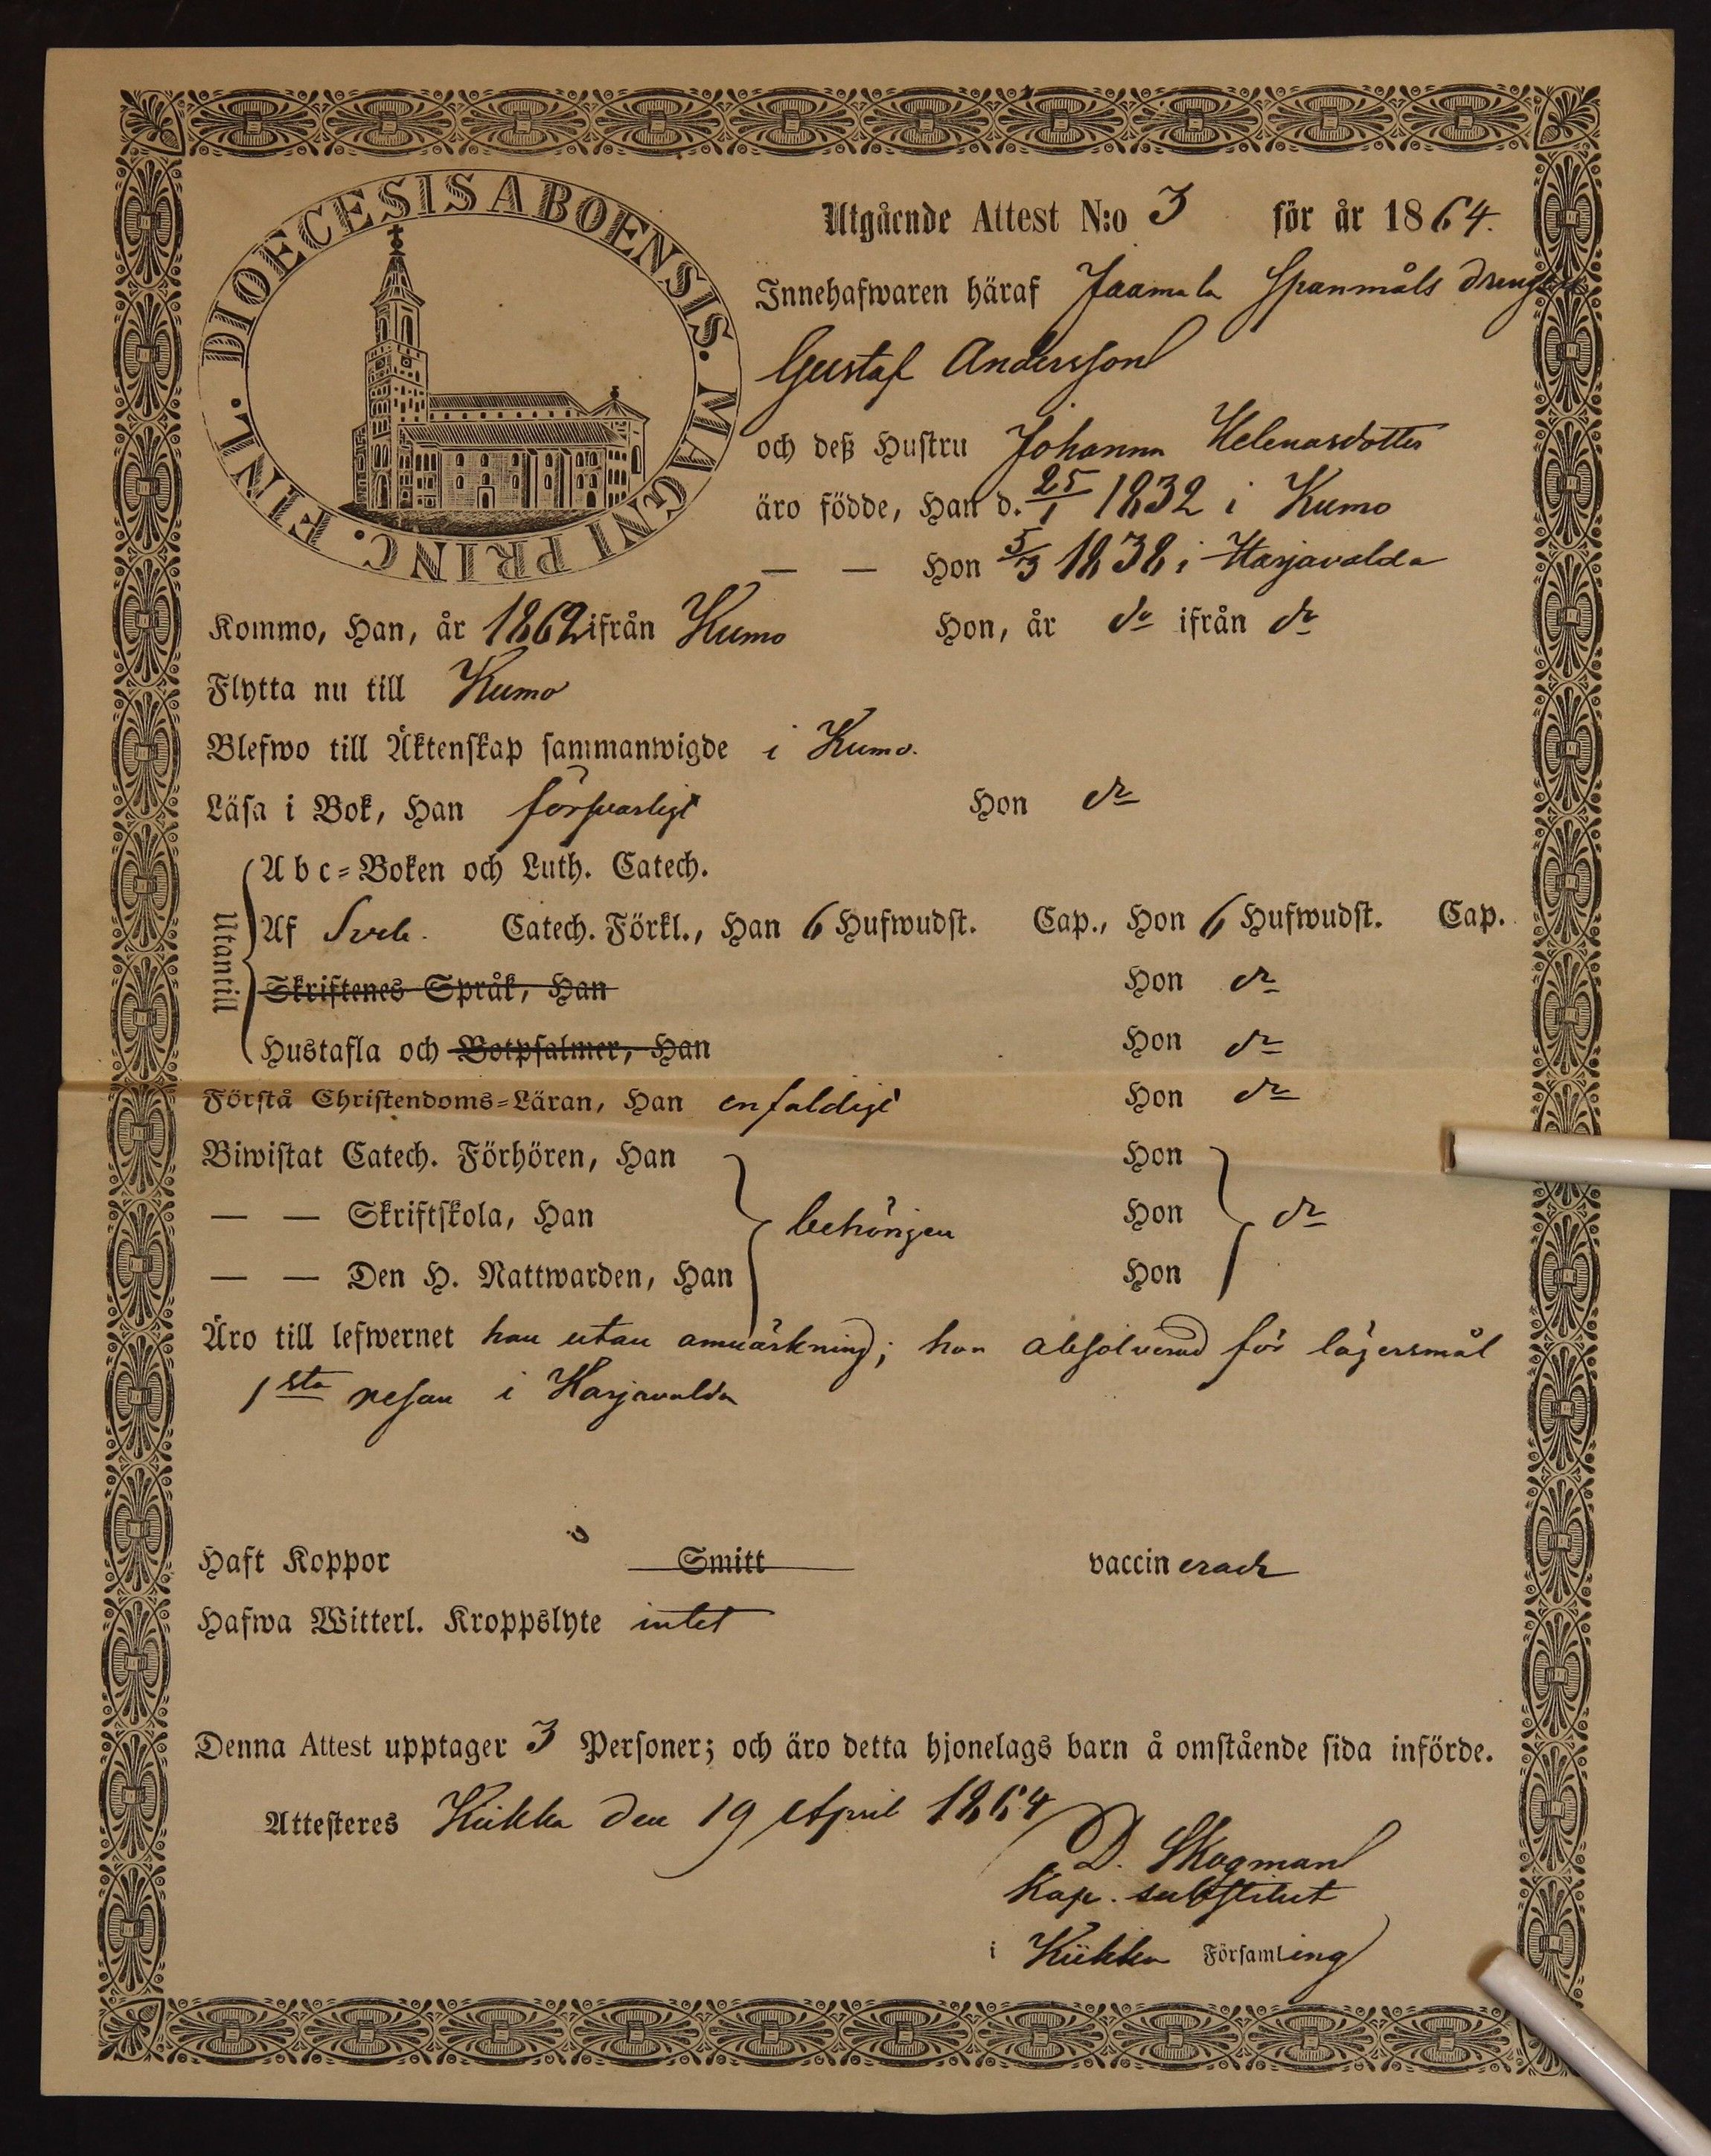 DIOECESIS ABOENSIS. MAGNI PRINC. FINL.
Utgående Attest N:o 3 för år 1864.
Innehafwaren häraf Jaamala Spanmåls drengen
Gustaf Andersson
och deß Hustru Johanna Helenasdotter
äro födde, Han d. 25/1 1832 i Kumo
— — Hon 5/3 1838 i Harjavalda
Kommo, Han, år 1862 ifrån Kumo Hon, år do ifrån do
Flytta nu till Kumo
Blefwo till Äktenskap sammanwigde i Kumo.
Läsa i Bok, Han försvarligt Hon do
Utantill
Abc-Boken och Luth. Catech.
Af Sveb. Catech. Förkl., Han 6 Hufwudst. Cap., Hon 6 Hufwudst. Cap.
Skriftenes Språk, Han Hon do
Hustafla och Botpsalmer, Han Hon do
Förstå Christendoms-Läran, Han enfaldigt Hon do
Biwistat Catech. Förhören, Han Hon
— — Skriftskola, Han behörigen Hon do
— — Den H. Nattwarden, Han Hon
Äro till lefwernet han utan anmärkning; hon absolverad för lägersmål
1sta resan i Harjavalda
Haft Koppor Smitt vaccinerade
Hafwa Witterl. Kroppslyte intet
Denna Attest upptager 3 Personer; och äro detta hjonelags barn å omstående sida införde.
Attesteres Kiikka den 19 April 1864
D. Skogman
Kap. substitut
i Kiikka Församling